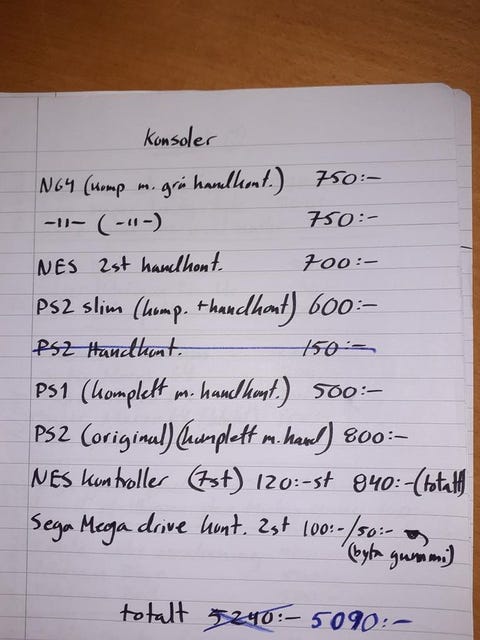 Konsoler
N64 (komp m. grå handkont.) 750:-
-11- (-11-) 750:-
NES 2st handkont. 700:-
PS2 slim (komp. + handkont) 600:-
PS2 Handkont. 150:-
PS1 (komplett m. handkont.) 500:-
PS2 (original) (komplett m. hand) 800:-
NES kontroller (7st) 120:-st 840:-(totalt)
Sega Mega drive kont. 2st 100:-/50:-
(byta gummi)
totalt 5240:- 5090:-